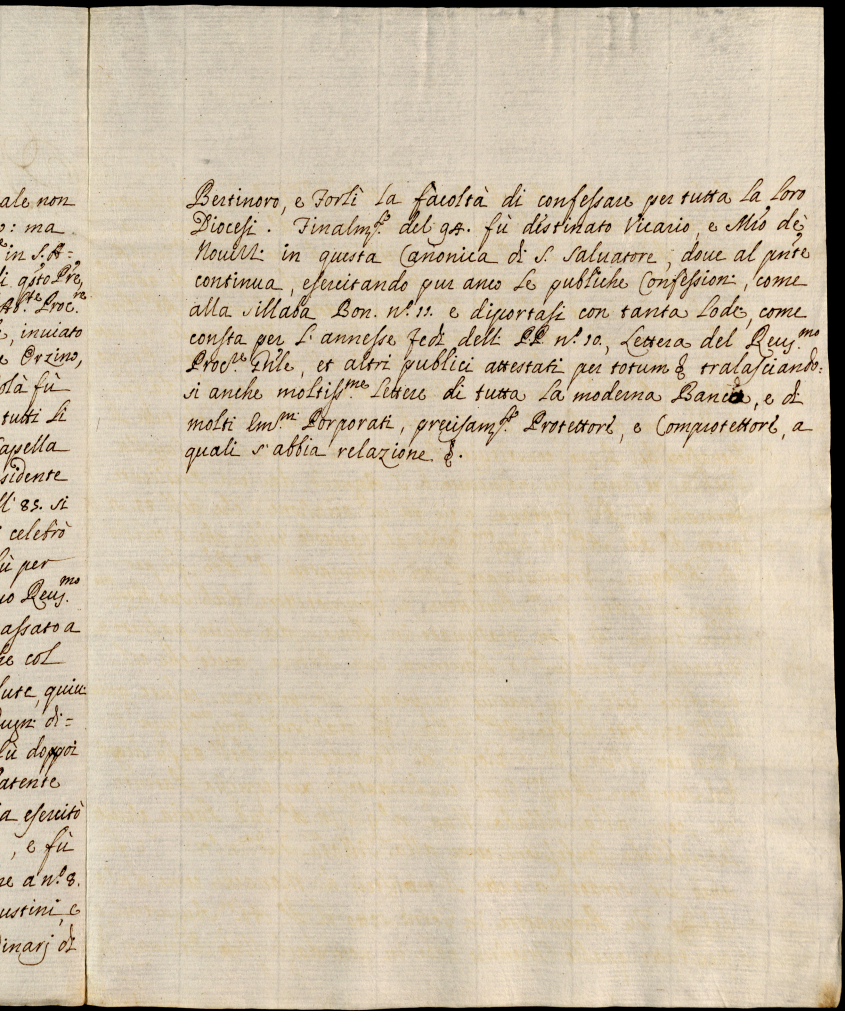 ale non
o: ma
in S. A=
li q̃sto Pre,
Ab.te Proc.re
, inviato
e Orzino,
olà fù
tutti li
Capella
sidente
ll' 85. si
celebrò
ù per
uo Reuj.mo
assato a
he col
lute, quiu:
ugn: di=
fù doppoi
latente
a esercitò
, e fù
ne a n.º 8.
ustini, e
dinarj di
Bertinoro, e Forlì la facoltà di confessare per tutta la loro
Diocesi. Finalm.te del 94. fù destinato Vicario, e Mrõ dè
Nouizzi: in questa Canonica di S. Salvatore, doue al pñte
continua, esercitando pur anco le publiche Confession:, come
alla sillaba Bon. n.º 11. e diportasi con tanta lode, come
consta per l' annesse fedi dell: PP. n.º 10., Lettera del Reuj.mo
Proc.re Gñle, et altri publici attestati per totum & tralasciando:
si anche moltiss.me lettere di tutta la moderna Banca, e di
molti Em.mi Porporati, precisam.te Protettore, e Comprotettore, a
quali s' abbia relazione &.